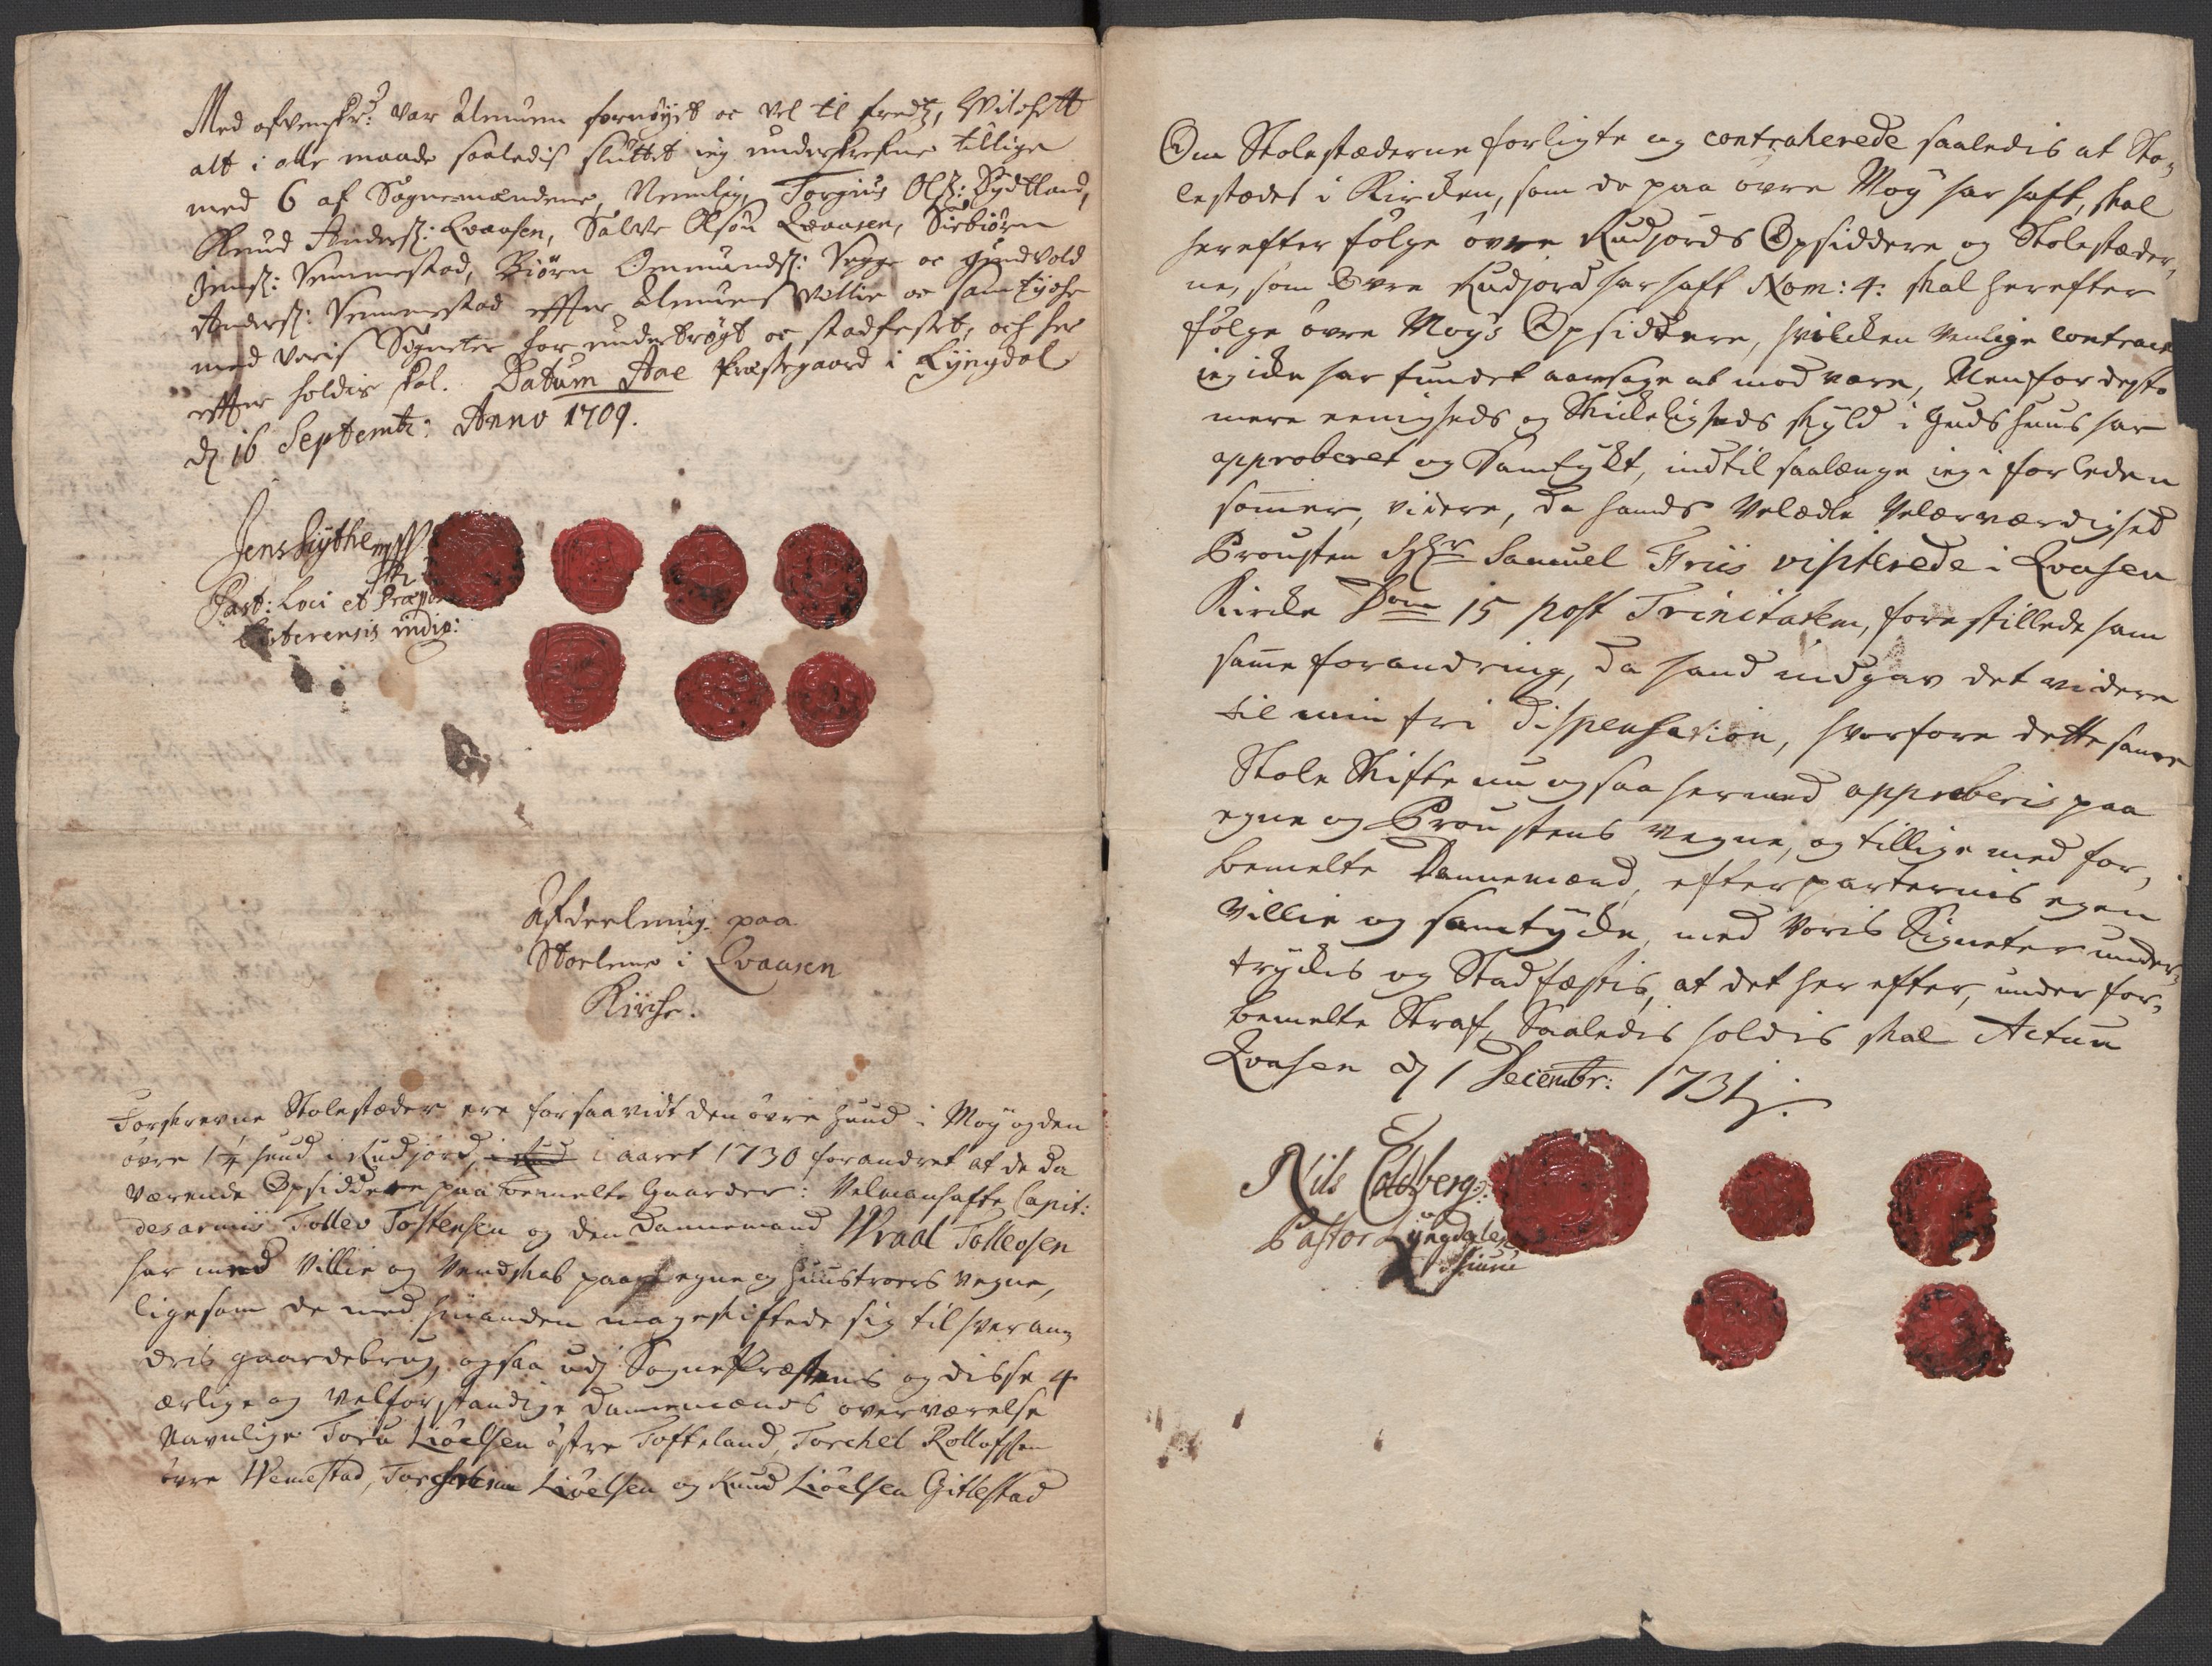 Med ofvenskr: var Almuen fornøyet oc vel til fredtz, Wilchett
alt i alle maade saaledis sluttet ieg underskrefne tillige
med 6 af Sognemændene, Nemlig, Torgius Ols: Sydtland,
Knud Anders: Qvaasen, Salve Olsøn Qvaasen, Sirbiørn
Jens: Vemmestad, Biørn Omunds: Vegge oc Gundvold
Anders: Vemmestad effter Almuens Villie oc samtyche
med voris Signeter har undertrøgt oc stadfestet, och her
effter holdis skal. Datum Aae Præstegaard i Lyngdal
dj 16 Septembr: Anno 1709.
Jens Lythe
Past: Loci et Præpos
Listerensis mpp:
Afdeelning paa
Stoelene i Qvaasen
Kirche.
Forskrevne Stolestæder ere forsaavidt den øvre huud i Moy og den
øvre 1 1/4 huud i Rudjord, i Rud i aaret 1730 forandret af de da
værende Opsiddere paa bemelte Gaarder: Velmanhafte Capit:
des armis Tollev Tostensen og den Dannemand Wraal Tollevsen
har med Villie og Vendskab paa egne og huustroers vegne,
ligesom de med hinanden mageskiftede sig til hveran,
dris gaardebrug, ogsaa udj SognePræstens og disse 4
ærlige og velforstandige Dannemænds overværelse
Navnlige Toru Lioelsen østre Tofteland, Torchel Rollofsen
øvre Wemestad, Torchelsen Lioelsen og Knud Lioelsen Gitlestad
Om Stolestæderne forligte og contraherede saaledis at Sto,
lestædet i Kircken, som de paa øvre Moy har haft, skal
herefter følge øvre Rudjords Opsiddere og Stolestæder,
ne, som Øvre Rudjord har haft Nom: 4: skal herefter
følge øvre Moy's Opsiddere, hvilcken venlige contract
ieg icke har fundet aarsage at mod være, Men for desto
mere eenigheds og Skickeligheds skyld i Guds huus har
approberet og Samtykt, indtil saalænge ieg i forleden
sommer, videre, da hands Velædle Velærværdighed
Prousten Hr Samuel Friis visiterede i Qvasen
Kircke Dom 15 post Trinitatem, forestillede ham
samme forandring, da hand indgav det videre
til min fri dispensation, hvorfore dette samme
Stole Skifte nu ogsaa hermed approberis paa
egne og Proustens vegne, og tillige med for,
bemelte Dannemænd, efter parternis egen
Villie og samtycke, med voris Signeter under,
tryckes og Stadfæstis, at det her efter, under for,
bemelte Straf, Saaledes holdes skal Actum
Qvasen dj 1 Decembr: 1731.
Nils Coldberg:
Pastor Lyngdalens